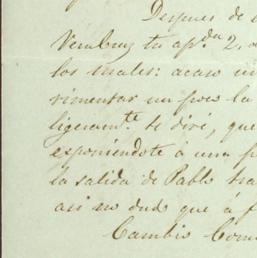 Despues de
tu ap.da 2,
los males: acaso
rimentar un poco la
ligeram.te te diré, que
esponiéndote á una
la salida de Pablo
asi no dudo que á
Cambio